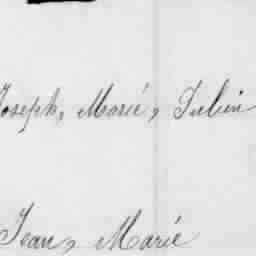 Joseph, Marié, Julien
Jean, Marié